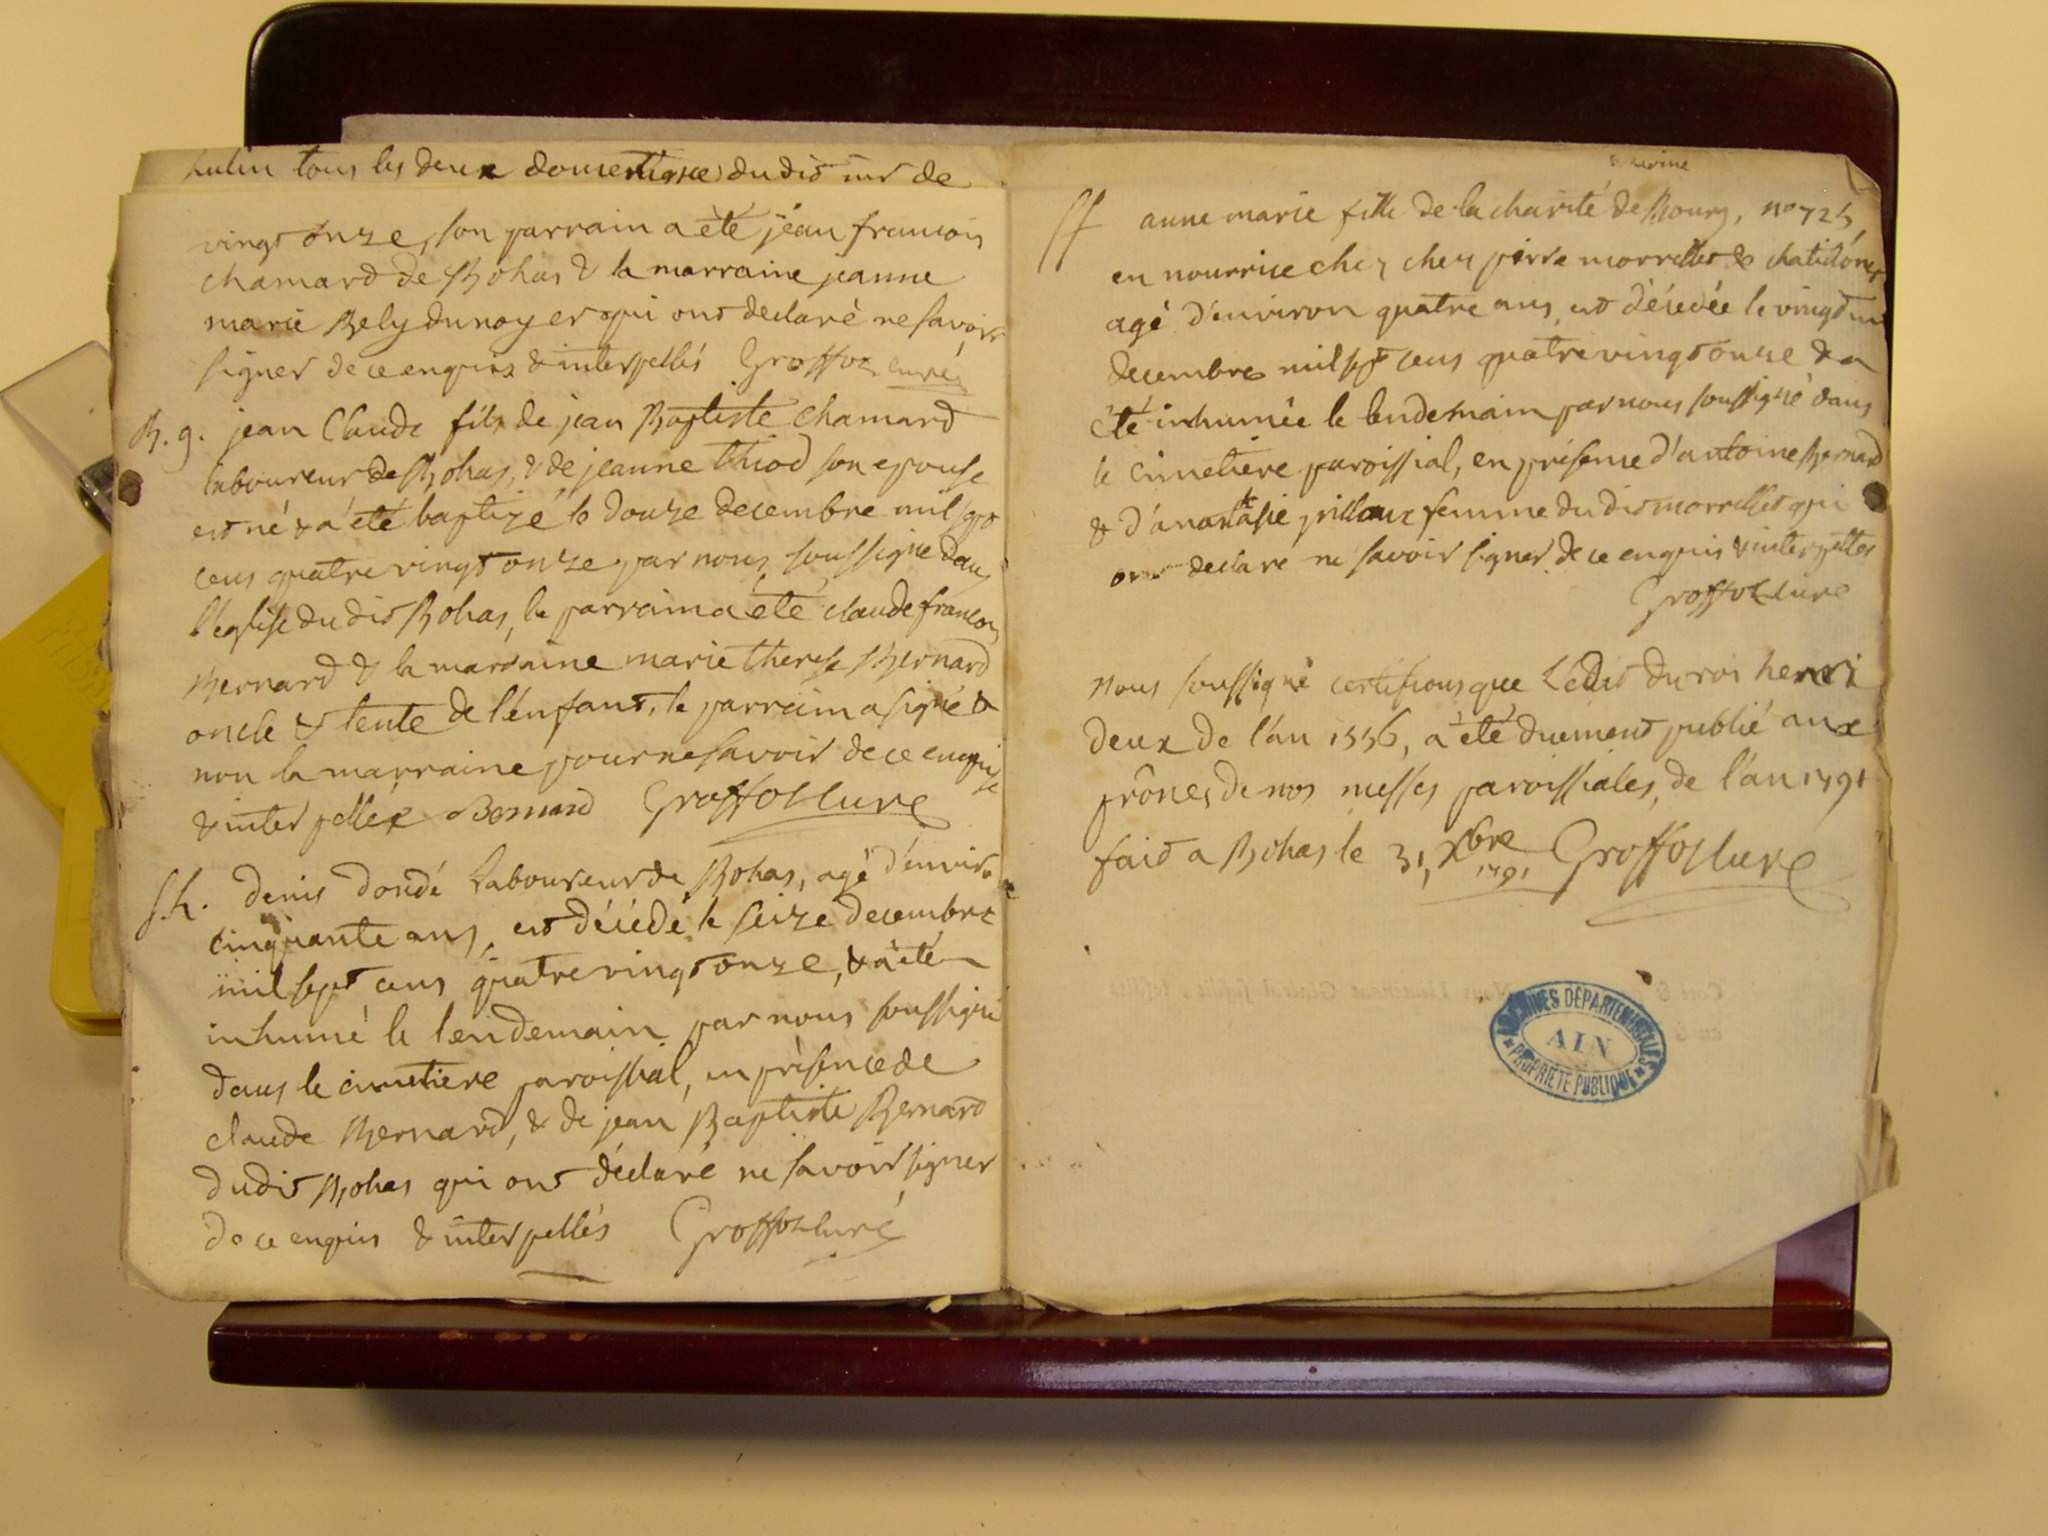 tous les deux domestique dudit sr de
vingt onze, son parrain a été jéan francois
chamard de Rohas & la marraine jeanne
marie Bely dunoyer qui ont declaré ne savoir
signer de ce enquis & interpellés Groffoz curé
B. g. jean Claude fils de jean Baptiste chamard
laboureur de Rohas, & de jeanne thiod son epouse
est né & a été baptizé le douze decembre mil sept
cens quatre vingt onze par nous soussigné dans
l'église dudit Rohas, le parrain a été claude francois
Bernard & la marraine marie therese Bernard
oncle & tente de l'enfant, le parrain a signé &
non la marraine pour ne savoir de ce enquise
& interpellée Bernard Groffoz Curé
S. h. denis dondé Laboureur de Rohas, agé d'environ
cinquante ans, est décédé le seize decembre
mil sept cens quatre vingt onze, & a été
inhumé le lendemain par nous soussigné
dans le cimetiere paroissial, en présence de
claude Bernard, & de jean Baptiste Bernard
dudit Rohas qui ont déclaré ne savoir signer
de ce enquis & interpellés Groffoz curé
anne marie fille de la charité de Bourg, no 725,
en nourrice chez chez pierre morrellet de
agé d'environ quatre ans, est décédée le vingt un
decembre mil sept cens quatre vingt onze & a
été inhumée le lendemain par nous soussigné dans
le cimetiere paroissial, en présence d'antoine Bernard
& d'anastasie femme dudit morrellet qui
ont declaré ne savoir signer de ce enquis & interpellés
Groffoz Curé
nous soussigné certifions que L'édit du roi henri
deux de l'an 1556, a été duement publié aux
prônes de nos messes paroissiales, de l'an 1791
fait a Rohas le 31, Xbre 1791 Groffoz Curé
ARCHIVES DÉPARTEMENTALES
AIN
PROPRIÉTÉ PUBLIQUE